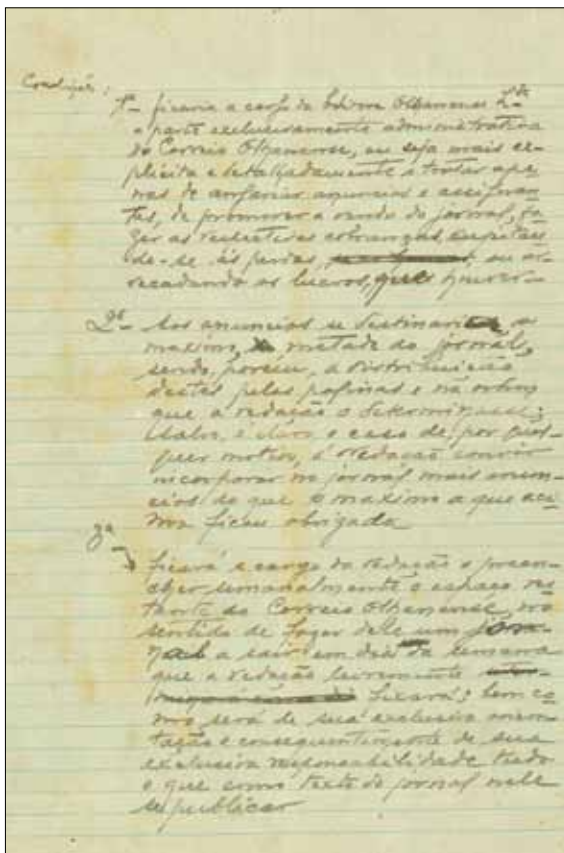 Condições:
1ª - ficaria a cargo da Olhanense L.da
a parte exclusivamente administrativa
do Correio Olhanense, ou seja mais ex-
plicita e detalhadamente a tratar ape-
nas de angariar anuncios e assinan-
tes, de promover a venda do jornal, fa-
zer as respectivas cobranças, sujeitan-
do-se ás perdas, ou ar-
recadando os lucros, que houver -
2ª - Aos anuncios se destinaria o
maximo, metade do jornal,
sendo, porem, a distribuição
destes pelas paginas e na ordem
que a redação o determinasse;
salvo, é claro, o caso de, por qual-
quer motivo, á redação convir
incorporar no jornal mais anun-
cios do que o maximo a que aci-
ma ficou obrigada
3ª -
ficará a cargo da redação o preen-
cher semanalmente o espaço res-
tante do Correio Olhanense, no
sentido de fazer dele um jor-
nal a sair em dia da semana
que a redação livremente
ficará; bem co-
mo será de sua exclusiva orien-
tação e consequentemente de sua
exclusiva responsabilidade tudo
o que como texto do jornal nele
se publicar